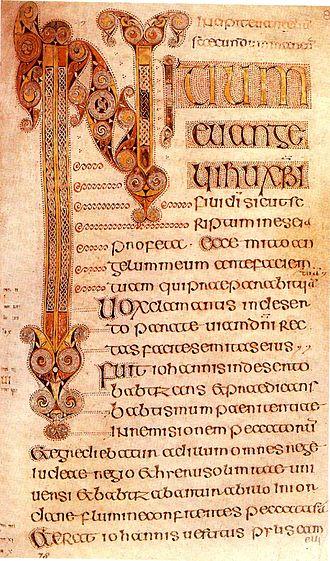 INITIUM
euange
lii ihu xpi
fili di sicut sc
riptum in eseia
profeta Ecce mitto an
gelum meum ante faciem
tuam qui praeparabit ui
Uox clamantis in deser
to parate uiam dni rec
tas facite semitas eius
Fuit iohannis in deserto
babtizans & praedicans
babtismum paenitentiae
in remisionem peccatorum
& egrediebatur ad illum omnes
iudeae regio & hierusolimitae uni
uersi & babtizabantur ab illo in ior
dane flumine confitentes peccata sua
& erat iohannis uestitus pylis cam